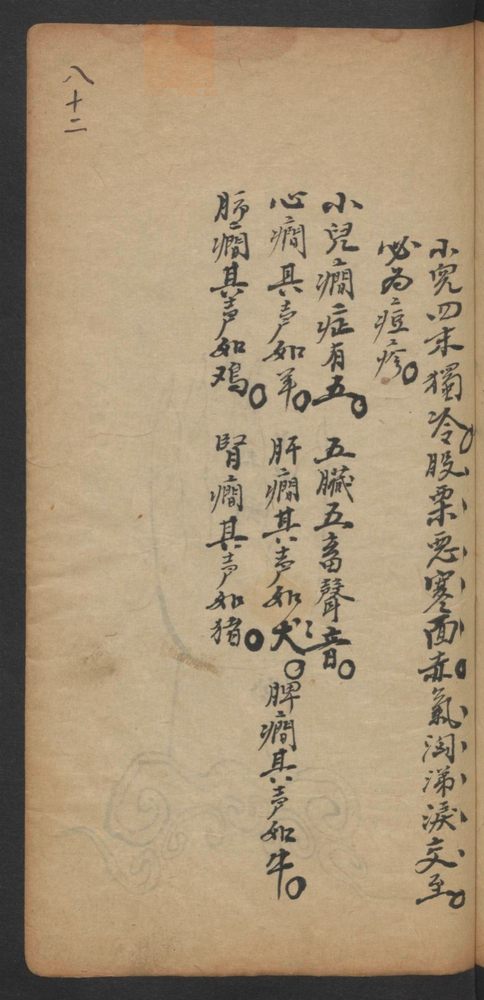 小兒四末獨冷股栗惡寒面赤氣洶涕淚交至。
必為痘疹。
小兒癇症有五。五臟五畜聲音。
心癇其声如羊。肝癇其声如犬。脾癇其声如牛。
肺癇其声如鸡。腎癇其声如猪。
八十二